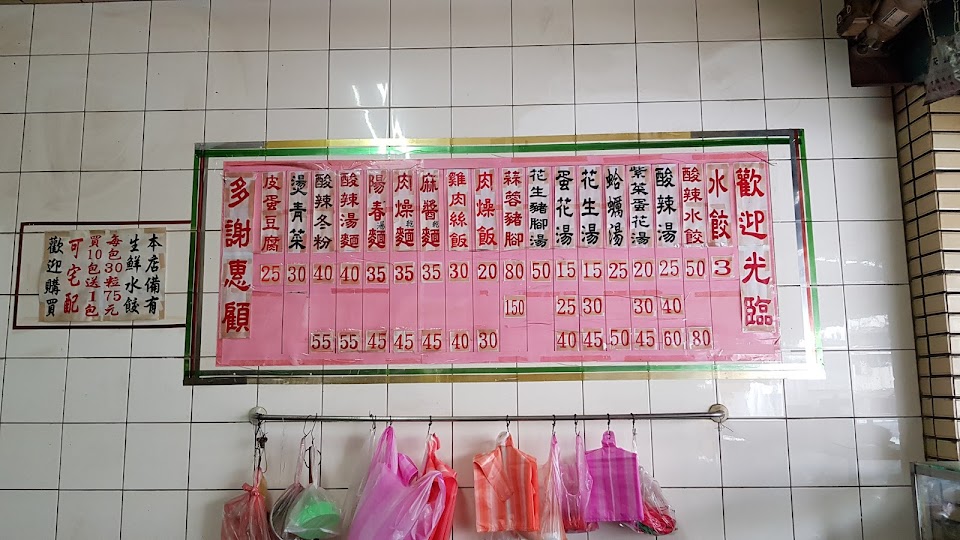 歡迎光臨
水餃 3
酸辣水餃 50 80
酸辣湯 25 40 60
紫菜蛋花湯 20 30 45
蛤蠣湯 25 50
花生湯 15 30 45
蛋花湯 15 25 40
花生豬腳湯 50
蒜蓉豬腳 80 150
肉燥飯 20 30
雞肉絲飯 30 40
麻醬乾麵 35 45
肉燥乾麵 35 45
陽春湯麵 35 45
酸辣湯麵 40 55
酸辣冬粉 40 55
燙青菜 30
皮蛋豆腐 25
多謝惠顧
本店備有
生鮮水餃
每包30粒75元
買10包送1包
可宅配
歡迎購買